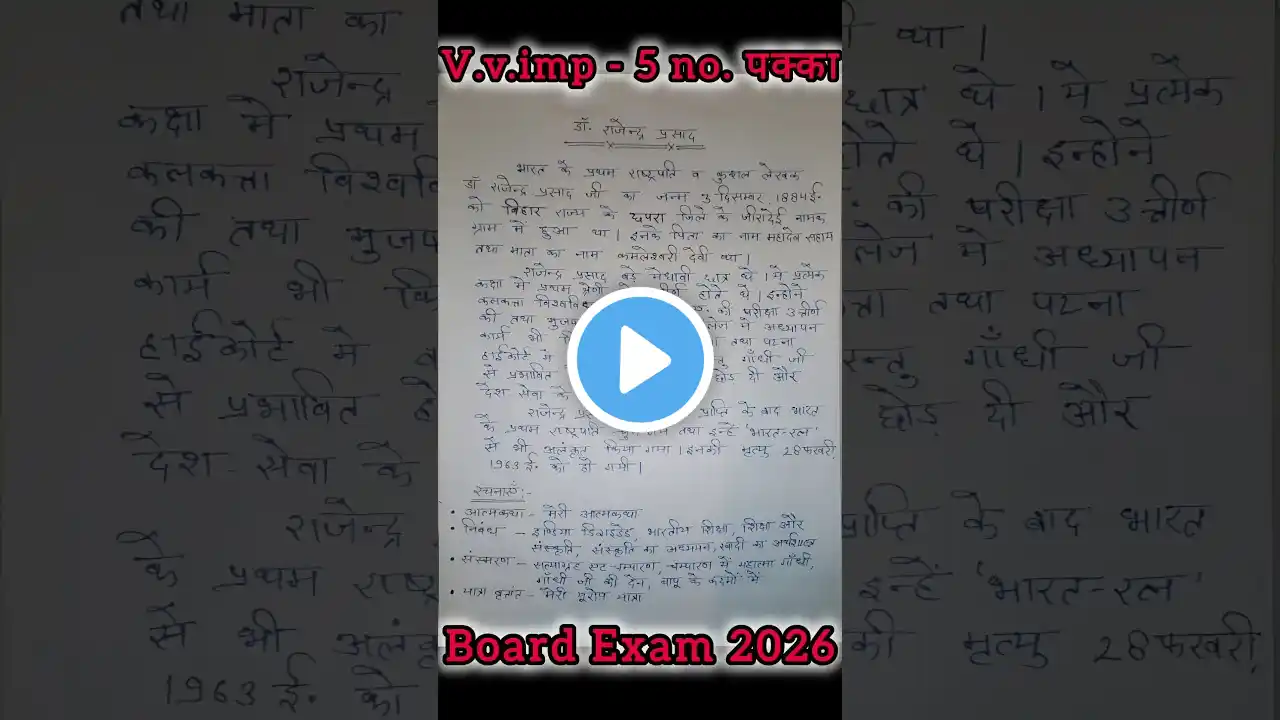 V.v.imp - 5 no. पक्का
डॉ. राजेन्द्र प्रसाद
भारत के प्रथम राष्ट्रपति व कुशल लेखक
डॉ राजेन्द्र प्रसाद जी का जन्म 3 दिसम्बर, 1884 ई.
को बिहार राज्य के छपरा जिले के जीरादेई नामक
ग्राम में हुआ था। इनके पिता का नाम महादेव सहाय
तथा माता का नाम कमलेश्वरी देवी था।
राजेन्द्र प्रसाद बड़े मेधावी छात्र थे। ये प्रत्येक
कक्षा में प्रथम श्रेणी होते थे। इन्होंने
कलकत्ता की परीक्षा उत्तीर्ण
की तथा लेज में अध्यापन
कार्य भी तथा पटना
हाईकोर्ट में गाँधी जी
से प्रभावित छोड़ दी और
देश सेवा के
राजेन्द्र प्राप्ति के बाद भारत
के प्रथम राष्ट्रपति तथा इन्हें 'भारत-रत्न'
से भी अलंकृत किया गया। इनकी मृत्यु 28 फरवरी,
1963 ई. को हो गयी।
रचनाएँ:-
• आत्मकथा - मेरी आत्मकथा
• निबंध - इण्डिया डिवाइडेड, भारतीय शिक्षा, शिक्षा और
संस्कृति, संस्कृति का अध्ययन, खादी का अर्थशास्त्र
• संस्मरण - सत्याग्रह एट चम्पारण, चम्पारण में महात्मा गाँधी,
गाँधी जी की देन, बापू के कदमों में
• यात्रा वृतांत - मेरी यूरोप यात्रा
Board Exam 2026